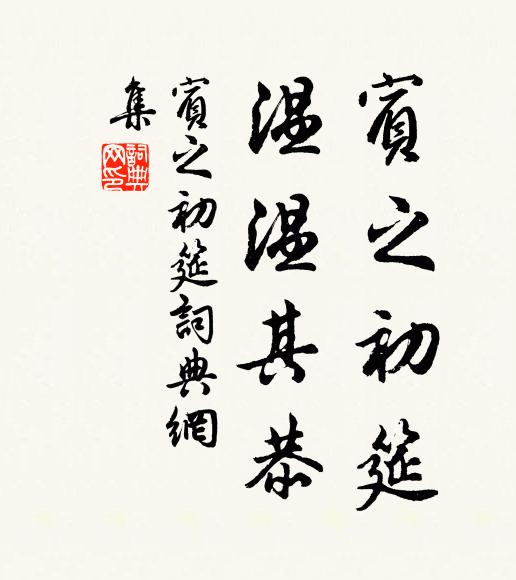 賓之初筵
溫溫其恭
賓之初筵詞典網
集
詞典
网印